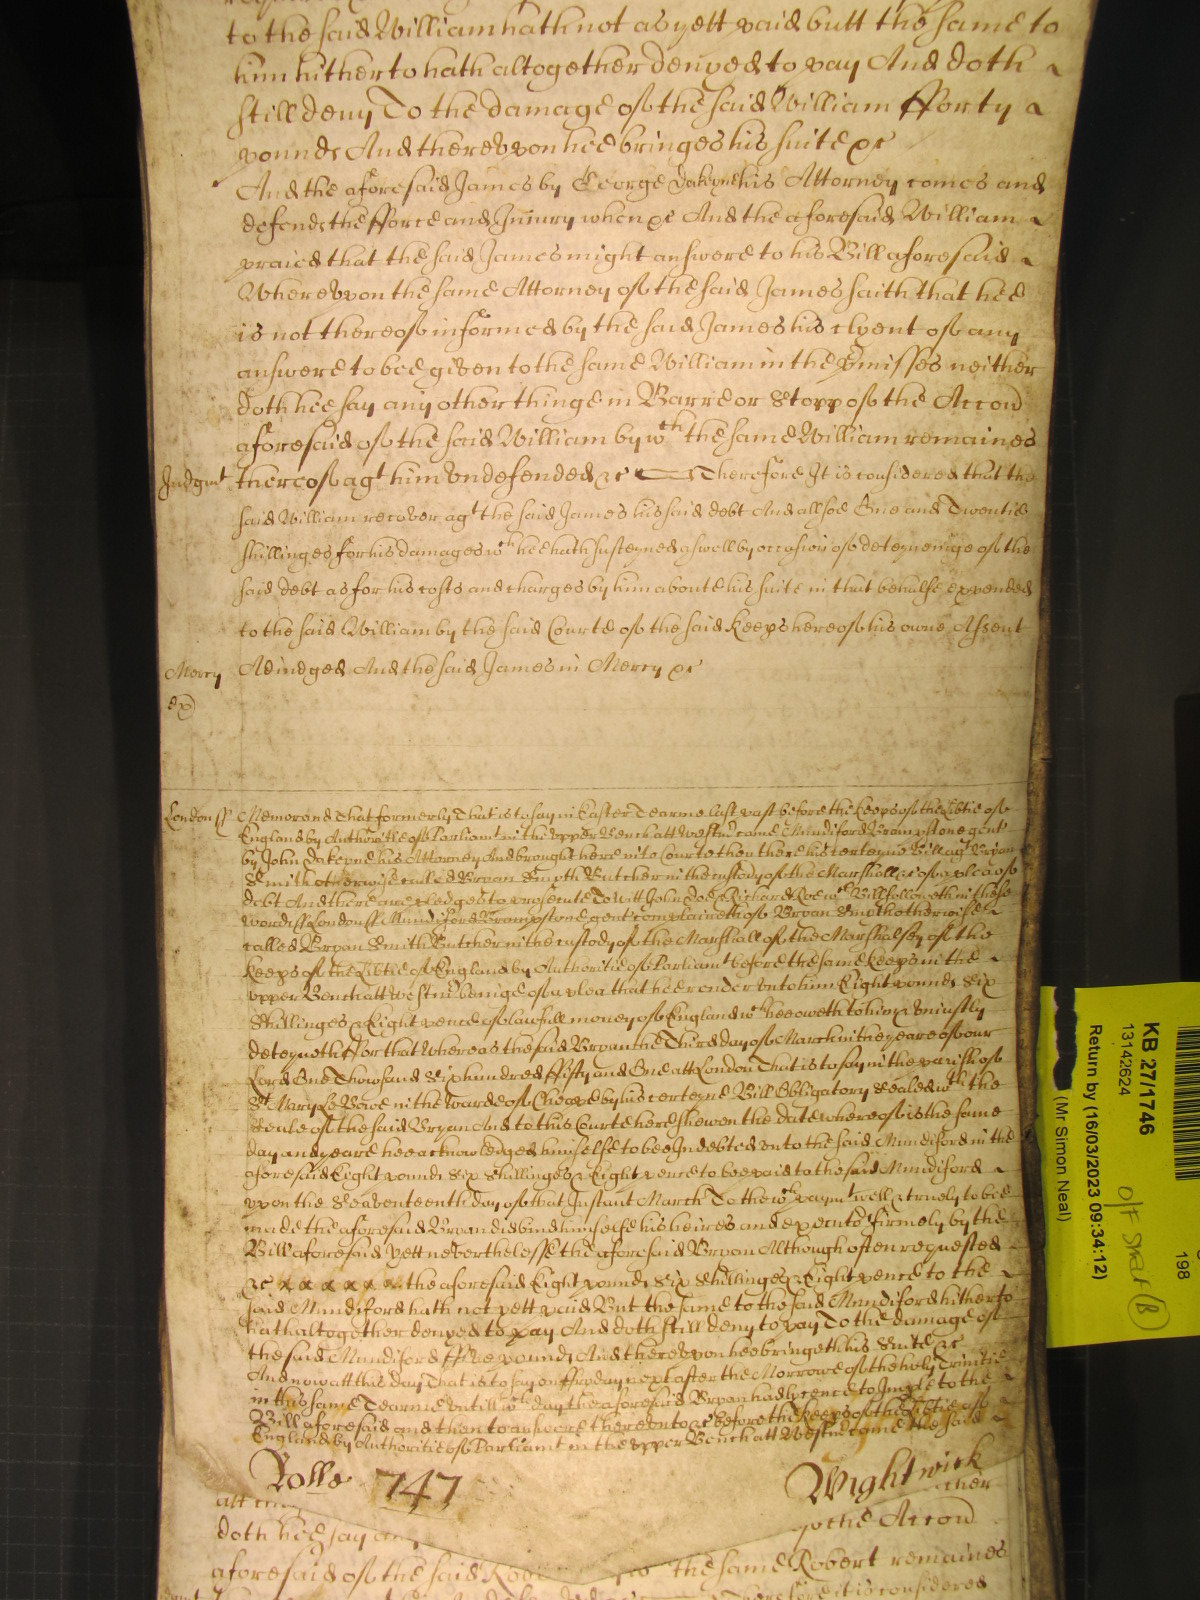 to the said William hath not as yett paid butt the same to
him hitherto hath altogether denyed to pay And doth
still deny To the damage of the said William fforty
pounds And therevpon hee bringes his suite &c
And the aforesaid James by George Dakeyne his Attorney comes and
defends the fforce and Iniury when &c And the aforesaid William
praied that the said James might answere to his Bill aforesaid
Wherevpon the same Attorney of the said James saith that hee
is not thereof informed by the said James his clyent of any
answere to bee given to the same William in the pmisses neither
doth hee say any other thinge in Barre or Stopp of the Accon
aforesaid of the said William by wch the same William remaines
Judgmt thereof agt him vndefended &c Therefore It is considered that the
said William recover agt the said James his said debt And allsoe One and Twentie
shillinges for his damages wch hee hath susteyned aswell by occasion of deteyneinge of the
said debt as for his costs and charges by him aboute his suite in that behalfe expended
to the said William by the said Courte of the said Keeps here of his owne Assent
Mercy Adiudged And the said James in Mercy &c
London ss Memorand That formerly That is to say in Easter Tearme last past before the Keeps of the Libtie of
England by Authoritie of Parliamt in the vpper Bench att Westmr came Mundiford Brampstone gent
by John Dakeyne his Attorney And brought here into Courte then there his certeyne Bill agt Bryan
Smith otherwise called Bryan Smyth Butcher in the custody of the Marshall &c of a plea of
debt And there are pledges to prosecute To witt John Doe & Richard Roe wch Bill followeth in these
wordes ss London ss Mundiford Brampstone gent complaineth of Bryan Smyth otherwise
called Bryan Smith Butcher in the custody of the Marshall of the Marshalsey of the
Keeps of the Libtie of England by Authoritie of Parliamt before the same Keeps in the
vpper Bench att Westmr beinge of a plea that hee render vnto him Eight pounds Six
Shillinges & Eight pence of lawfull money of England wch hee oweth to him & vniustly
deteyneth ffor that Whereas the said Bryan the Third day of March in the yeare of our
Lord One Thowsand Six hundred ffifty and One att London That is to say in the parish of
St Mary Le Bowe in the Warde of Cheape by his certeyne Bill Obligatory Sealed wth the
Seale of the said Bryan And to this Courte here shewen the date whereof is the same
day and yeare hee acknowledged himselfe to bee Indebted vnto the said Mundiford in the
aforesaid Eight pounds Six Shillinges & Eight pence to bee paid to the said Mundiford
vpon the Seaventeenth day of that Instant March To the wch paymt well & truely to bee
made the aforesaid Bryan did bind himselfe his heires and executors firmely by the
Bill aforesaid Yett neverthelesse the aforesaid Bryan Although often requested
&c the aforesaid Eight pounds Six Shillinges & Eight pence to the
said Mundiford hath not yett paid But the same to the said Mundiford hitherto
hath altogether denyed to pay And doth still deny to pay To the damage of
the said Mundiford ffive pounds And therevpon hee bringeth his Suite &c
And now att this day That is to say on ffryday next after the Morrowe of the holy Trinitie
in this same Tearme vntill wch day the aforesaid Bryan had lycence to Imple to the
Bill aforesaid and then to answere therevnto &c before the Keeps of the Libtie of
England by Authoritie of Parliamt in the vpper Bench att Westmr come the said
Rolle 747 Wightwick
doth hee say
the Accon
aforesaid of the said the same Robert remaines
Therefore it is considered
KB 27/1746
13142624
Return by (16/03/2023 09:34:12)
(Mr Simon Neal)
198